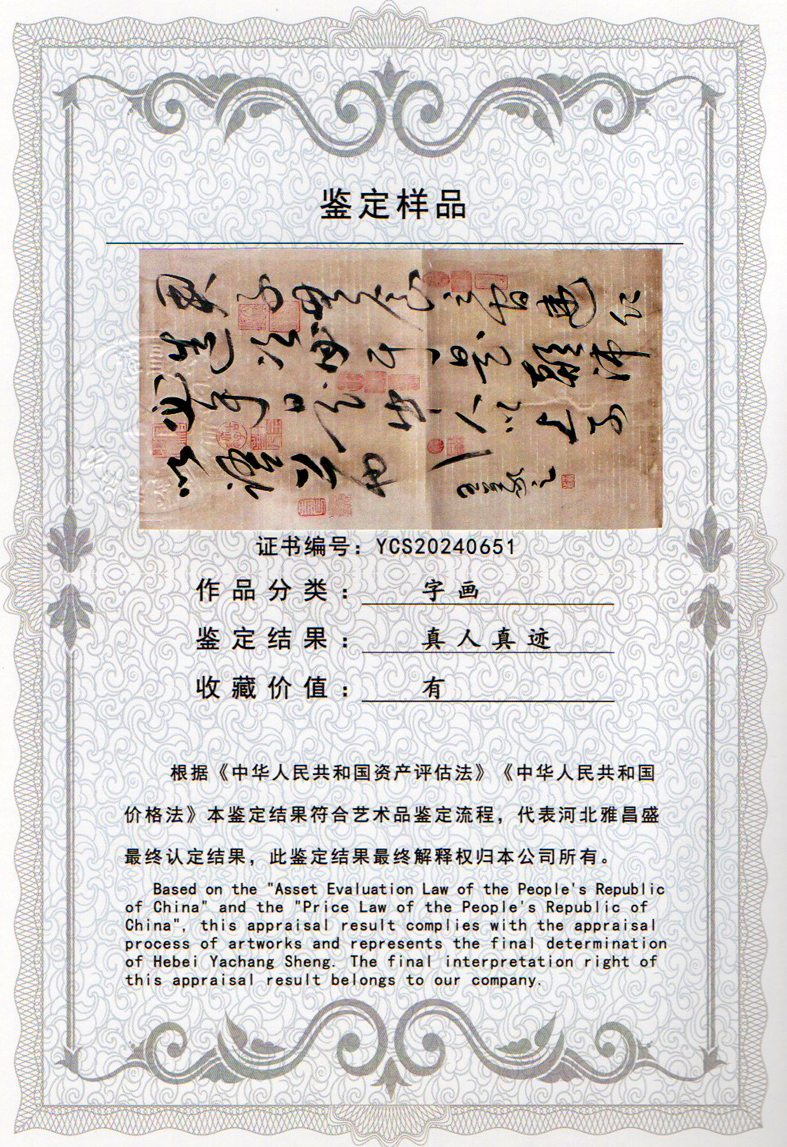 鉴定样品
证书编号：YCS20240651
作品分类：字画
鉴定结果：真人真迹
收藏价值：有
根据《中华人民共和国资产评估法》《中华人民共和国
价格法》本鉴定结果符合艺术品鉴定流程，代表河北雅昌盛
最终认定结果，此鉴定结果最终解释权归本公司所有。
Based on the "Asset Evaluation Law of the People's Republic
of China" and the "Price Law of the People's Republic of
China", this appraisal result complies with the appraisal
process of artworks and represents the final determination
of Hebei Yachang Sheng. The final interpretation right of
this appraisal result belongs to our company.